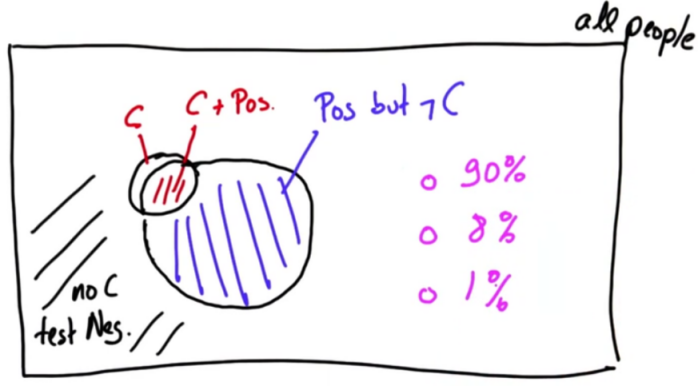 all people
C
C + Pos.
Pos but ¬ C
90%
8%
1%
no C
test Neg.